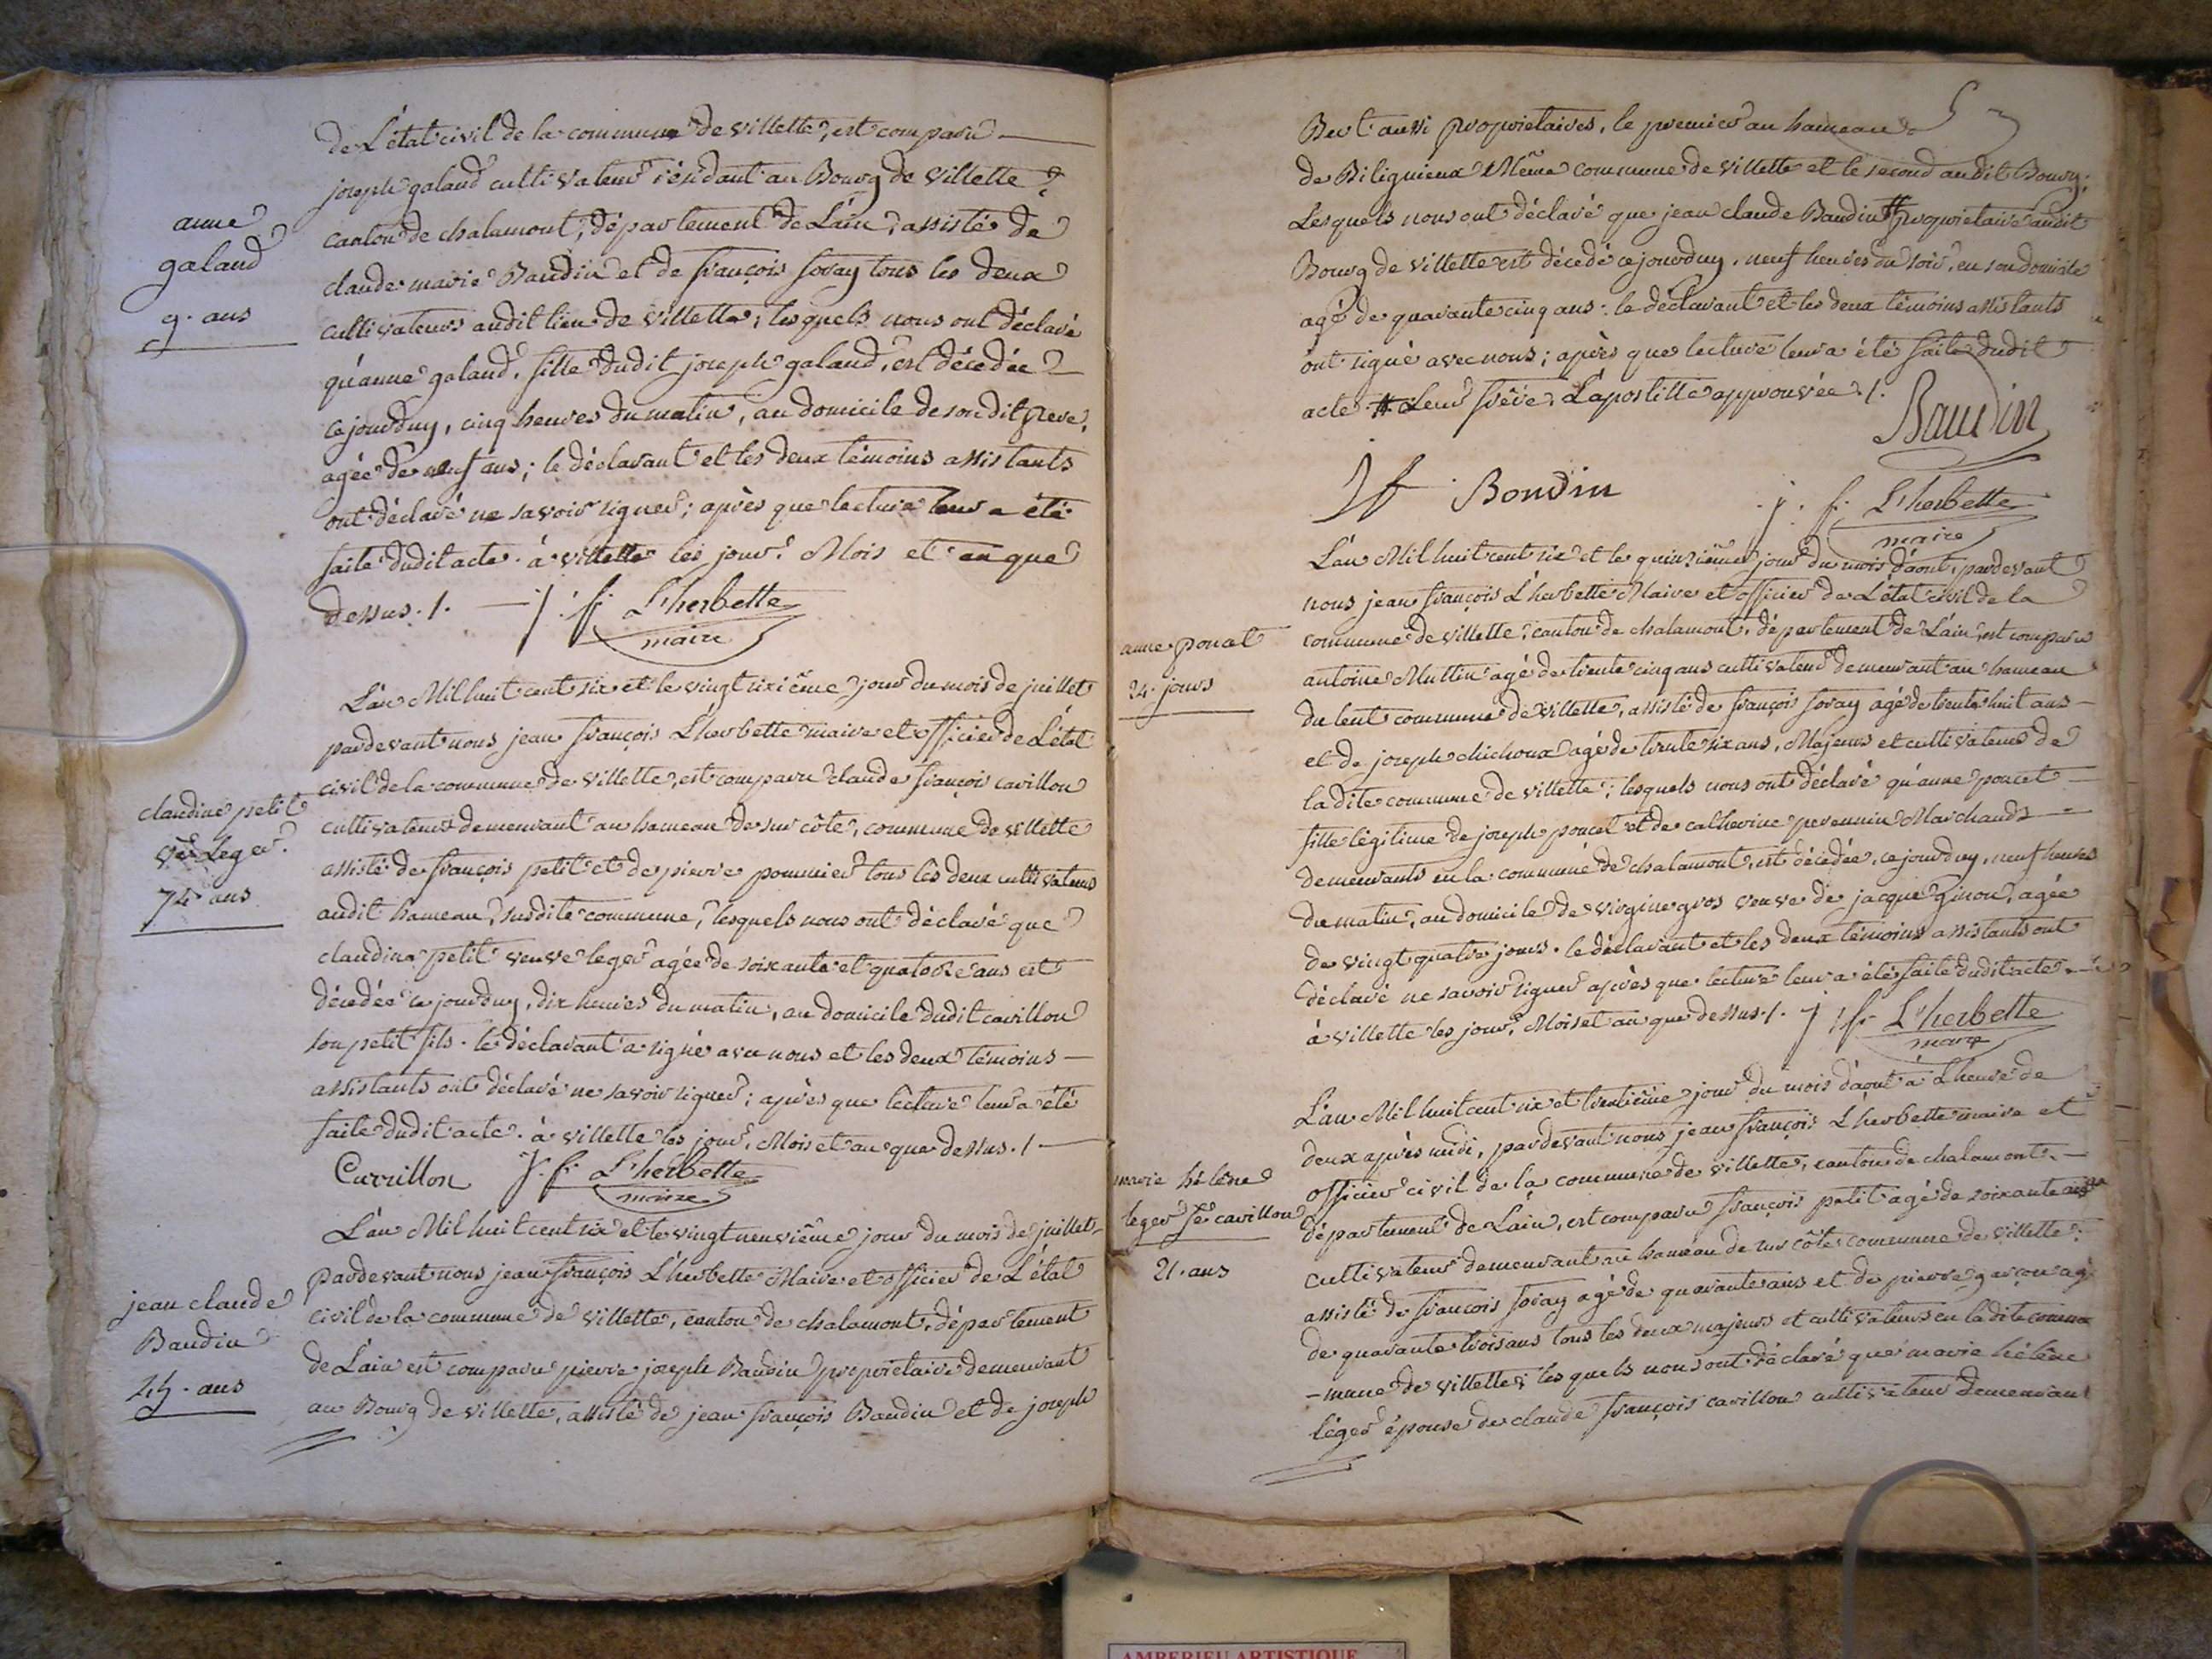 De L'état civil de la commune de villette, est comparu
joseph galand cultivateur résidant au Bourg de villette
canton de chalamont, département de Lain, assisté de
claude marie Baudin et de françois foray tous les deux
cultivateurs audit lieu de villette; lesquels nous ont déclaré
qu'anne galand, fille dudit joseph galand, est décedée
cejourduy, cinq heures du matin, au domicile de son dit pere,
agée de neuf ans; le déclarant et les deux témoins assistants
ont déclaré ne savoir signer; après que lecture leur a été
faite dudit acte. à villette les jour, Mois et an que
dessus ./. j. f. L'herbette
maire
anne
galand
9. ans
L'an Mil huit cent six et le vingt sixième jour du mois de juillet
pardevant nous jean françois L'herbette maire et officier de L'état
civil de la commune de villette, est comparu claude françois cavillon
cultivateur demeurant au hameau de sur côte, commune de villette
assisté de françois petit et de pierre pommier tous les deux cultivateurs
audit hameau, susdite commune, lesquels nous ont déclaré que
claudine petit veuve leger agée de soixante et quatorze ans est
décedée ce jourduy, dix heures du matin, au domicile dudit cavillon
son petit fils. le déclarant a signé avec nous et les deux témoins
assistants ont déclaré ne savoir signer; après que lecture leur a été
faite dudit acte. à villette les jour, Mois et an que dessus ./.
Cavrillon j. f. L'herbette
maire
claudine petit
ve Leger
74 ans
L'an Mil huit cent six et le vingt neuvième jour du mois de juillet
pardevant nous jean françois L'herbette Maire et officier de L'état
civil de la commune de villette, canton de chalamont, département
de Lain est comparu pierre joseph Baudin propriétaire demeurant
au Bourg de villette, assisté de jean françois Baudin et de joseph
jean claude
Baudin
45. ans
Bert aussi propriétaires, le premier au hameau
de Biligneux Même commune de villette et le second audit Bourg;
Lesquels nous ont déclaré que jean claude Baudin # propriétaire audit
Bourg de villette est décedé cejourduy, neuf heures du soir, en son domicile
agé de quarante cinq ans. le déclarant et les deux témoins assistants
ont signé avec nous; après que lecture leur a été faite dudit
acte. # Leur frère. L'apostille approuvée ./.
Baudin
Jf Boudin
j. f. L'herbette
maire
L'an Mil huit cent six et le quinzième jour du mois d'aout, pardevant
nous jean françois L'herbette Maire et officier de L'état civil de la
commune de villette, canton de chalamont, département de Lain, est comparu
antoine Muttin agé de trente cinq ans cultivateur demeurant au hameau
du lent commune de villette, assisté de françois foray agé de trente huit ans
et de joseph chichoux agé de trente six ans, Majeurs et cultivateurs de
la dite commune de villette; lesquels nous ont déclaré qu'anne poncet
fille légitime de joseph poncet et de catherine perennin Marchands
demeurants en la commune de chalamont, est décedée, ce jourduy, neuf heures
du matin, au domicile de virgine gros veuve de jacque ginon, agée
de vingt quatre jours. le déclarant et les deux témoins assistants ont
déclaré ne savoir signer après que lecture leur a été faite dudit acte.
à villette les jour, Mois et an que dessus ./. j. f. L'herbette
maire
anne poncet
24. jours
L'an Mil huit cent six et trentième jour du mois d'aout à L'heure de
deux après midi, pardevant nous jean françois L'herbette maire et
officier civil de la commune de villette, canton de chalamont.
département de Lain, est comparu françois petit agé de soixante ans
cultivateur demeurant au hameau de sur côte commune de villette.
assisté de françois foray agé de quarante ans et de pierre garçon agé
de quarante trois ans tous les deux majeurs et cultivateurs en la dite com
-mune de villette; lesquels nous ont déclaré que marie hélène
léger épouse de claude françois cavillon cultivateur demeurant
marie hélène
leger fe cavillon
21. ans
AMBERIEU ARTISTIQUE